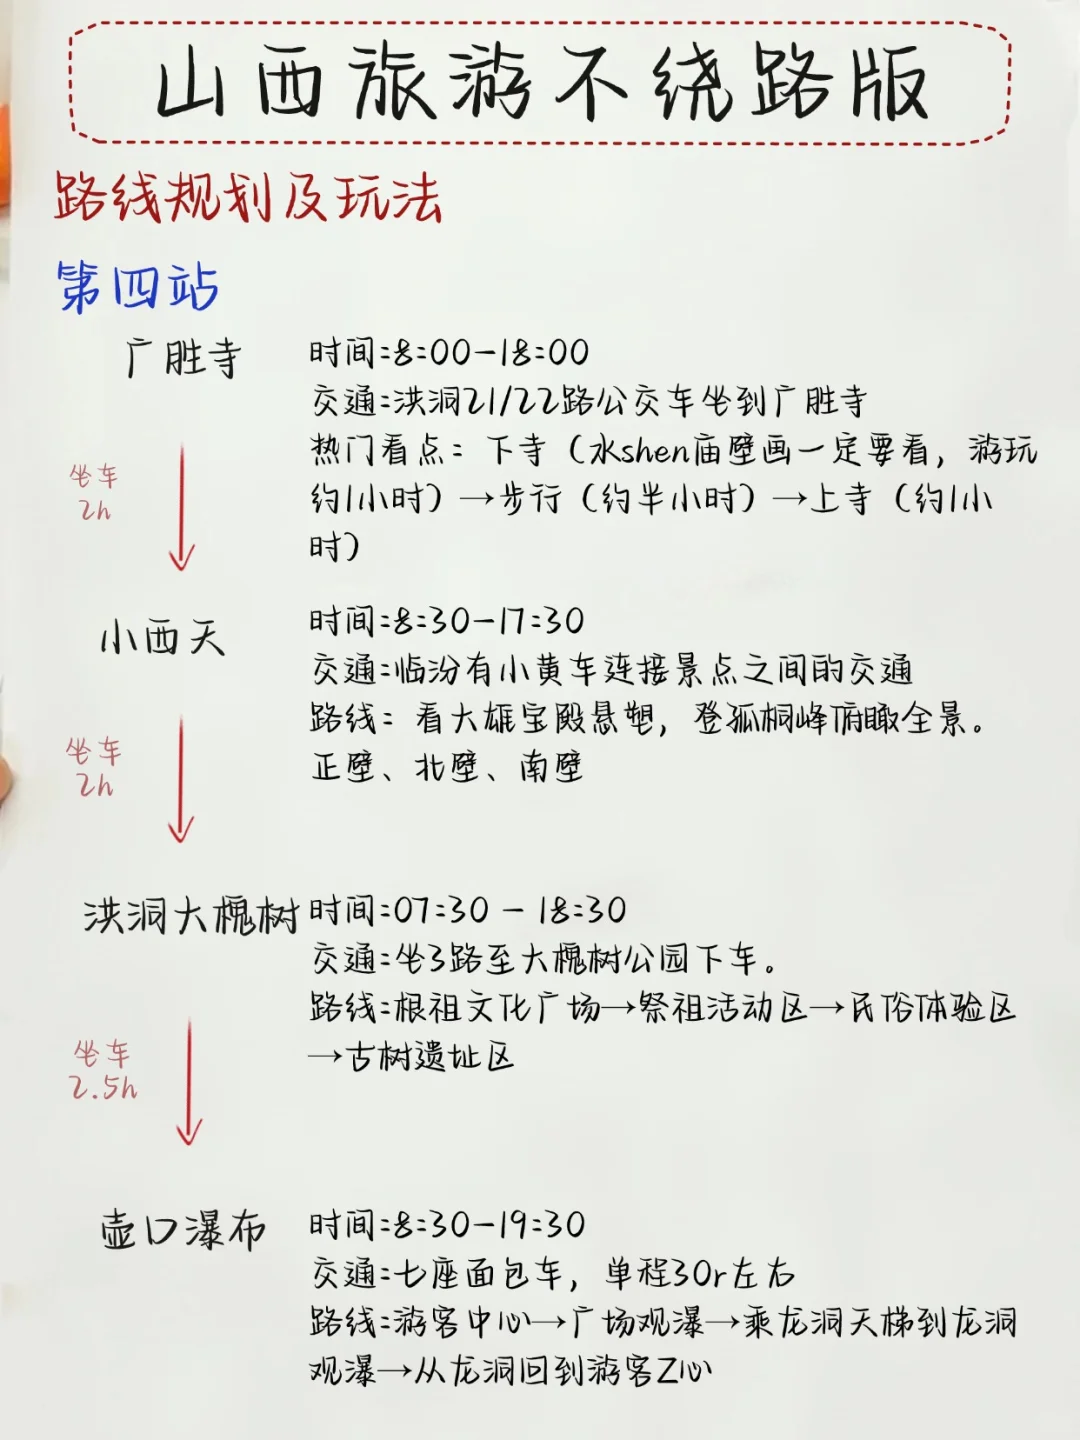 山西旅游不绕路版
路线规划及玩法
第四站
广胜寺
时间:8:00-18:00
交通:洪洞21/22路公交车坐到广胜寺
热门看点：下寺（水shen庙壁画一定要看，游玩
约1小时）→步行（约半小时）→上寺（约1小
时）
坐车
2h
小西天
时间:8:30-17:30
交通:临汾有小黄车连接景点之间的交通
路线：看大雄宝殿悬塑，登孤桐峰俯瞰全景。
正壁、北壁、南壁
坐车
2h
洪洞大槐树
时间:07:30 - 18:30
交通:坐3路至大槐树公园下车。
路线:根祖文化广场→祭祖活动区→民俗体验区
→古树遗址区
坐车
2.5h
壶口瀑布
时间:8:30-19:30
交通:七座面包车，单程30r左右
路线:游客中心→广场观瀑→乘龙洞天梯到龙洞
观瀑→从龙洞回到游客Z心